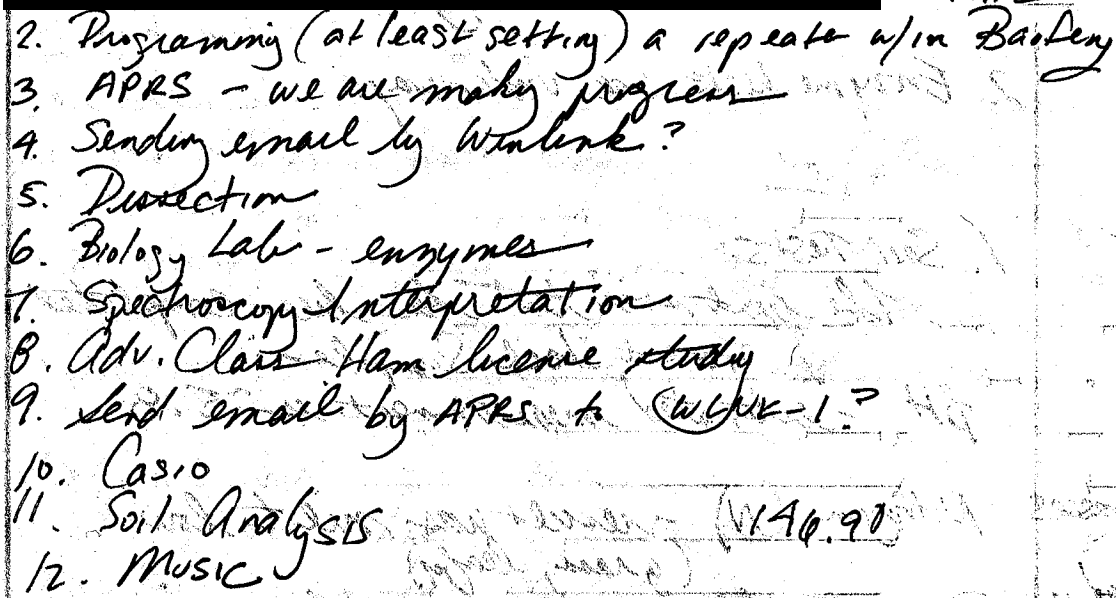 2. Programming (at least setting) a repeater w/in Baofeng
3. APRS - we are making progress
4. Sending email by Winlink?
5. Dissection
6. Biology Lab - enzymes
7. Spectroscopy Interpretation
8. Adv. Class Ham license study
9. Send email by APRS to WLNK-1?
10. Casio
11. Soil Analysis
12. Music